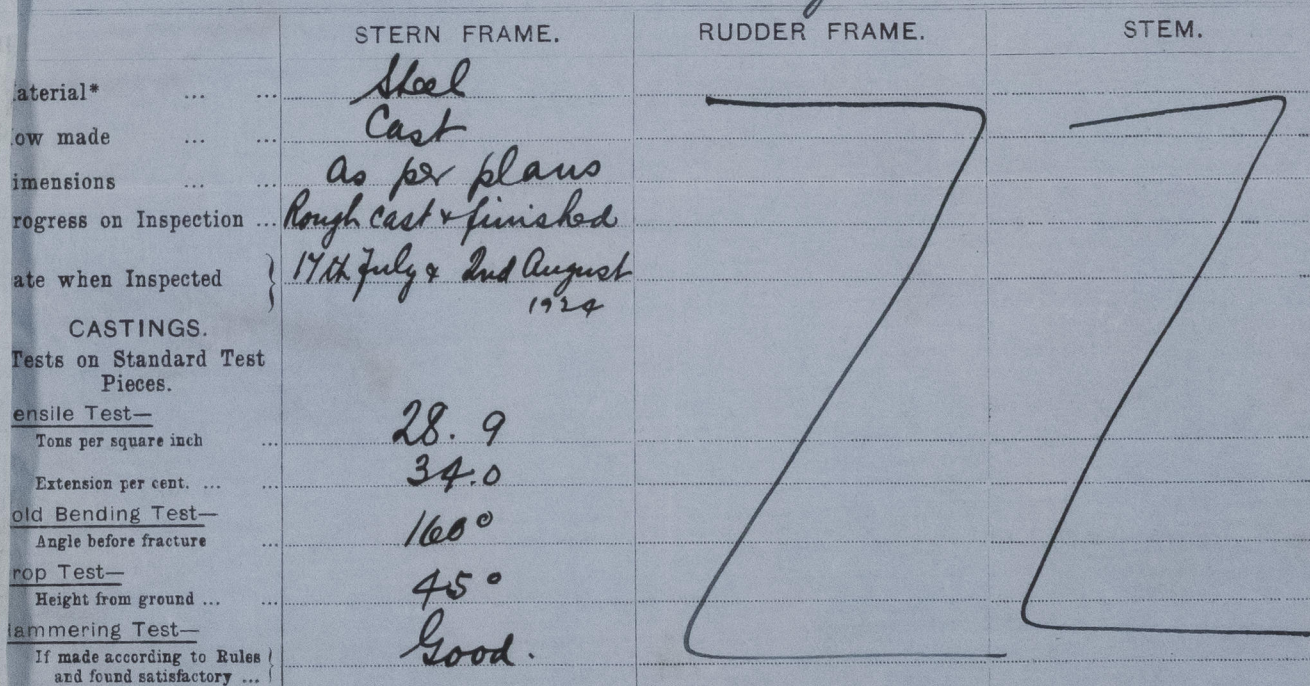 STERN FRAME. RUDDER FRAME. STEM.
aterial* ... ... Steel
ow made ... ... Cast
imensions ... ... as per plans
rogress on Inspection ... Rough cast & finished
ate when Inspected } 17th July & 2nd August
1924
CASTINGS.
Tests on Standard Test
Pieces.
ensile Test—
Tons per square inch ... 28.9
Extension per cent. ... ... 34.0
old Bending Test—
Angle before fracture ... 160°
rop Test—
Height from ground ... ... 45°
ammering Test—
If made according to Rules } Good.
and found satisfactory ...